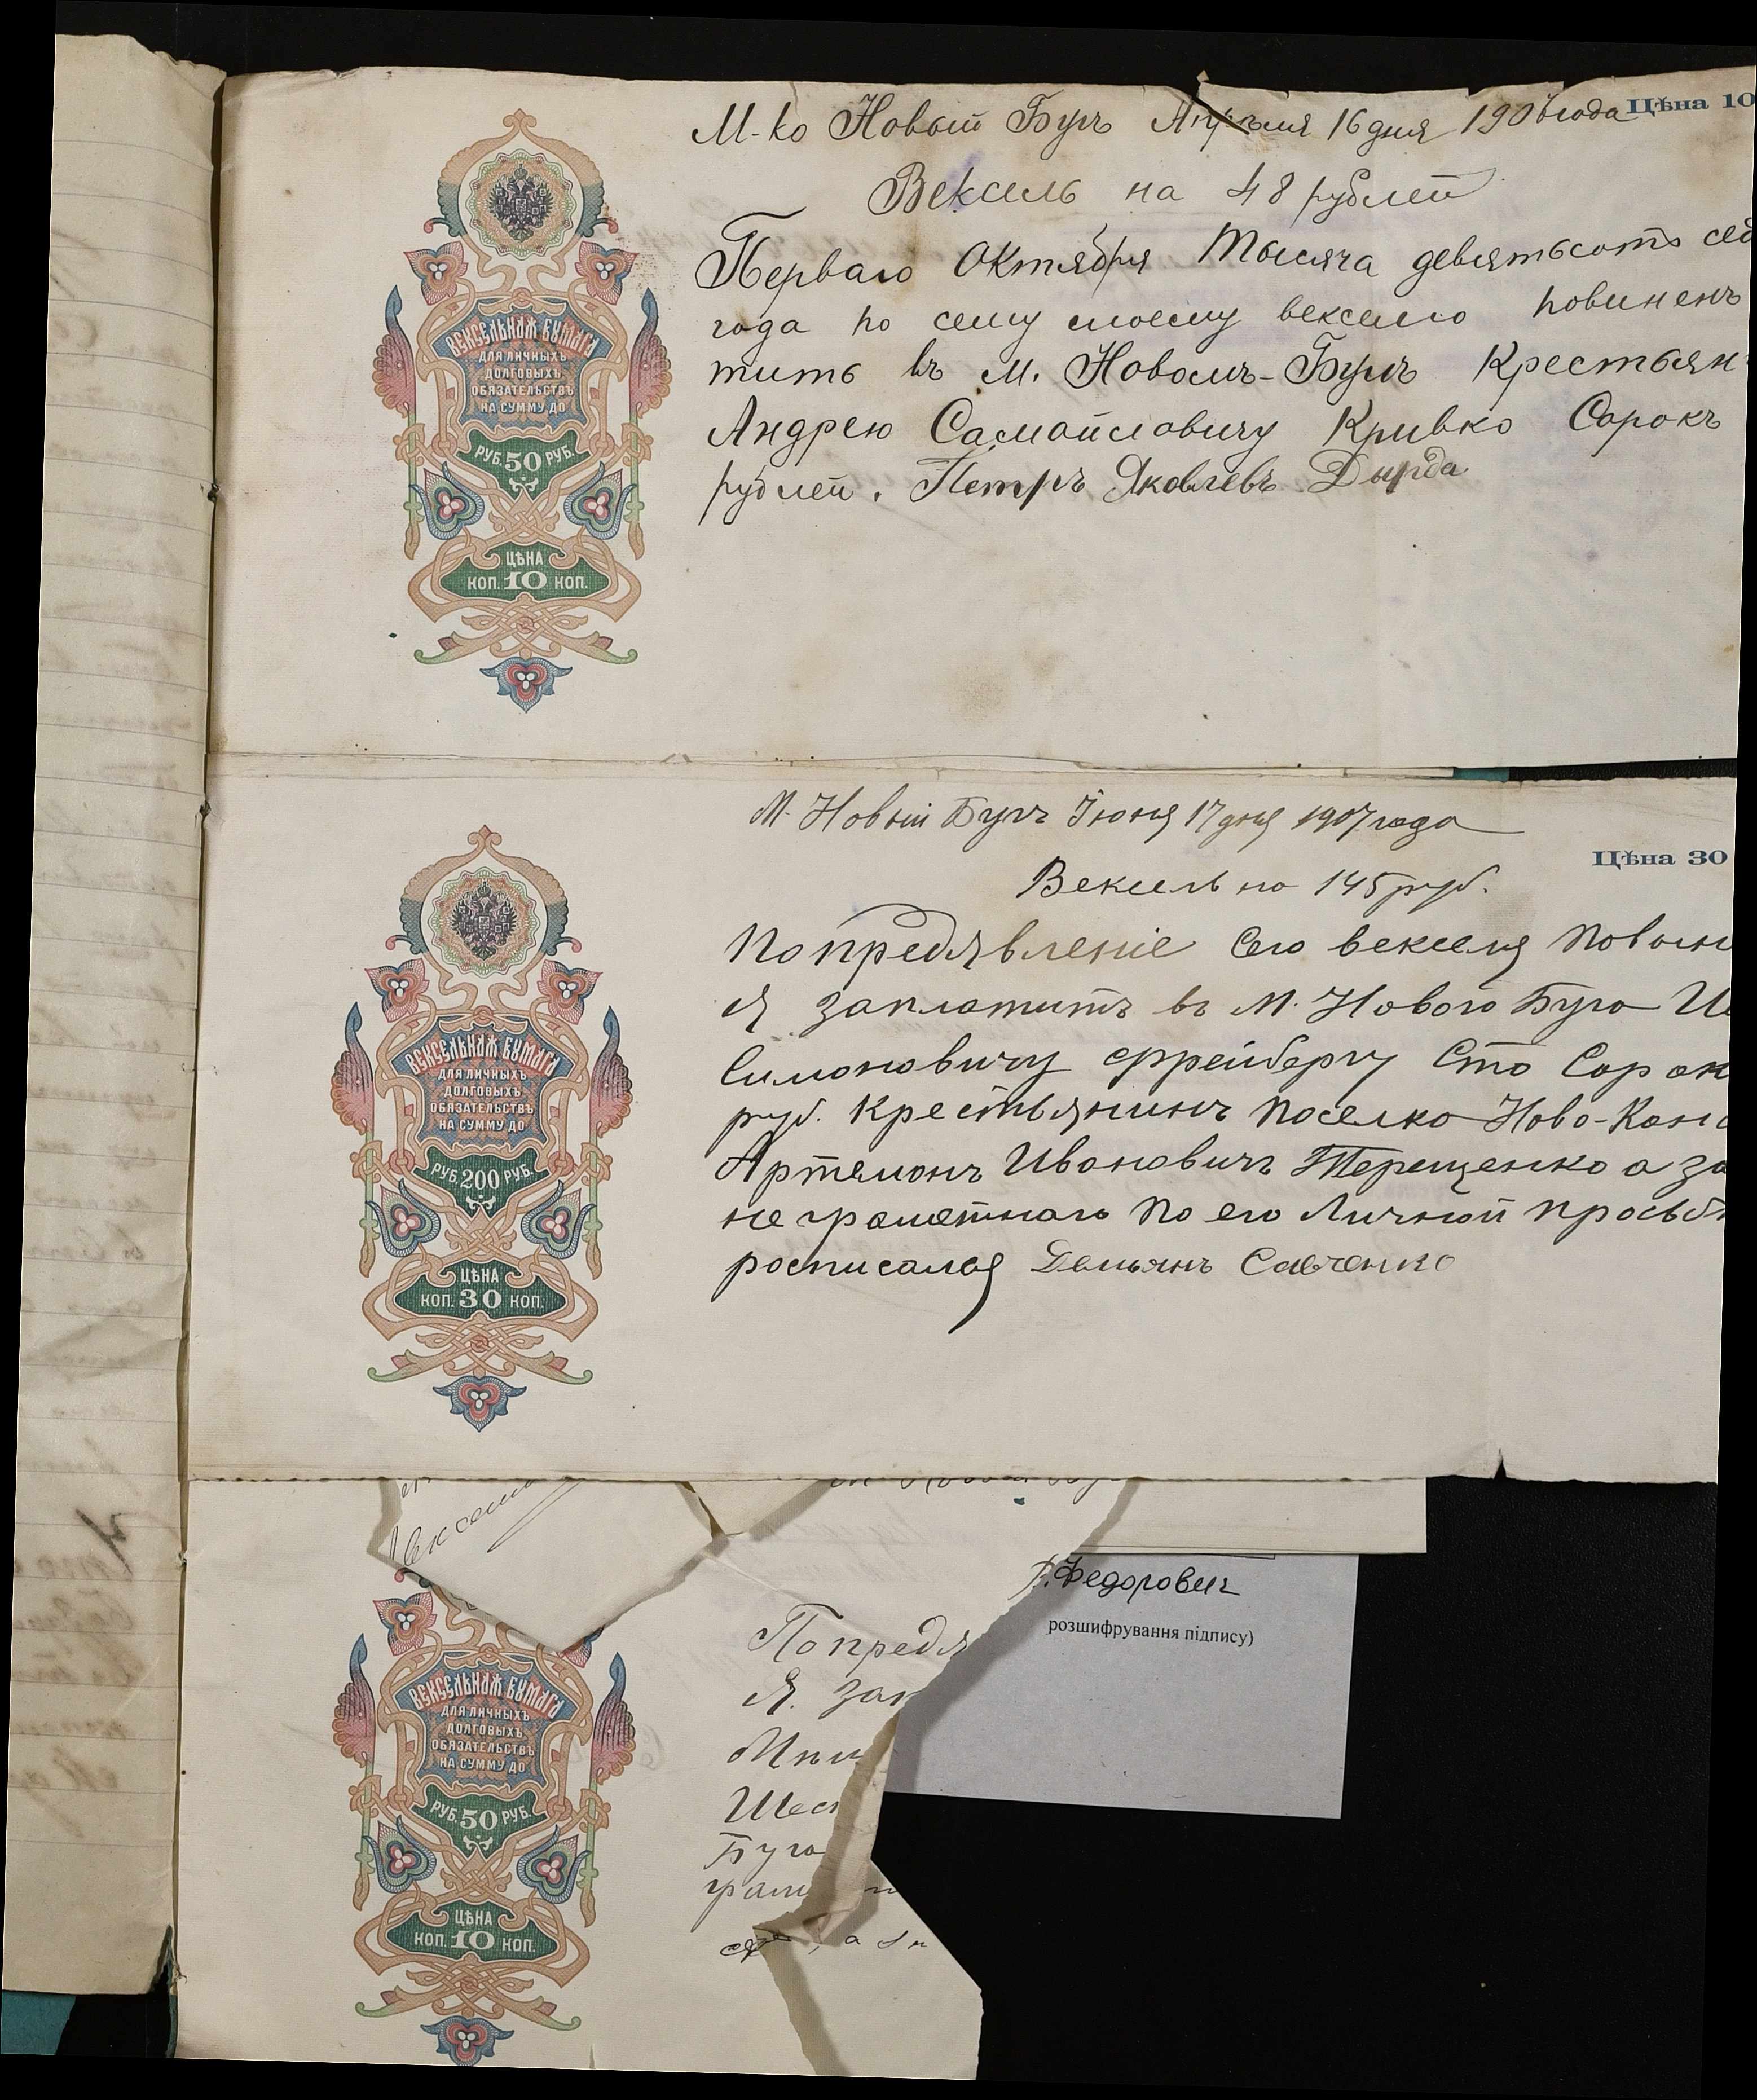 М-ко Новый Бугъ Апрѣля 16 дня 190 года Цѣна 10
Вексель на 48 рублей
Перваго Октября Тысяча девятьсотъ сед
года по сему моему векселю повиненъ
тить въ м. Новомъ-Бугѣ Крестьян
Андрею Самойловичу Кривко Сорокъ
рублей. Петръ Яковлевъ Дырда
ВЕКСЕЛЬНАЯ БУМАГА
ДЛЯ ЛИЧНЫХЪ
ДОЛГОВЫХЪ
ОБЯЗАТЕЛЬСТВЪ
НА СУММУ ДО
РУБ. 50 РУБ.
ЦѢНА
КОП. 10 КОП.
М. Новый Бугъ Іюня 17 дня 1907 года
Цѣна 30
Вексель на 145 руб.
По предявленіе сего векселя повин
Я заплатить въ М. Нового Буга И
Симоновичу Фрейбергу Сто Сорок
руб. Крестьянинъ поселка Ново-Кон
Артемонъ Ивановичъ Терещенко а за
не граматнаго по его Личной прозьб
росписался Демьянъ Савченко
ВЕКСЕЛЬНАЯ БУМАГА
ДЛЯ ЛИЧНЫХЪ
ДОЛГОВЫХЪ
ОБЯЗАТЕЛЬСТВЪ
НА СУММУ ДО
РУБ. 200 РУБ.
ЦѢНА
КОП. 30 КОП.
Федорович
розшифрування підпису)
По предя
Я. зап
Шест
Буга
грам
ВЕКСЕЛЬНАЯ БУМАГА
ДЛЯ ЛИЧНЫХЪ
ДОЛГОВЫХЪ
ОБЯЗАТЕЛЬСТВЪ
НА СУММУ ДО
РУБ. 50 РУБ.
ЦѢНА
КОП. 10 КОП.